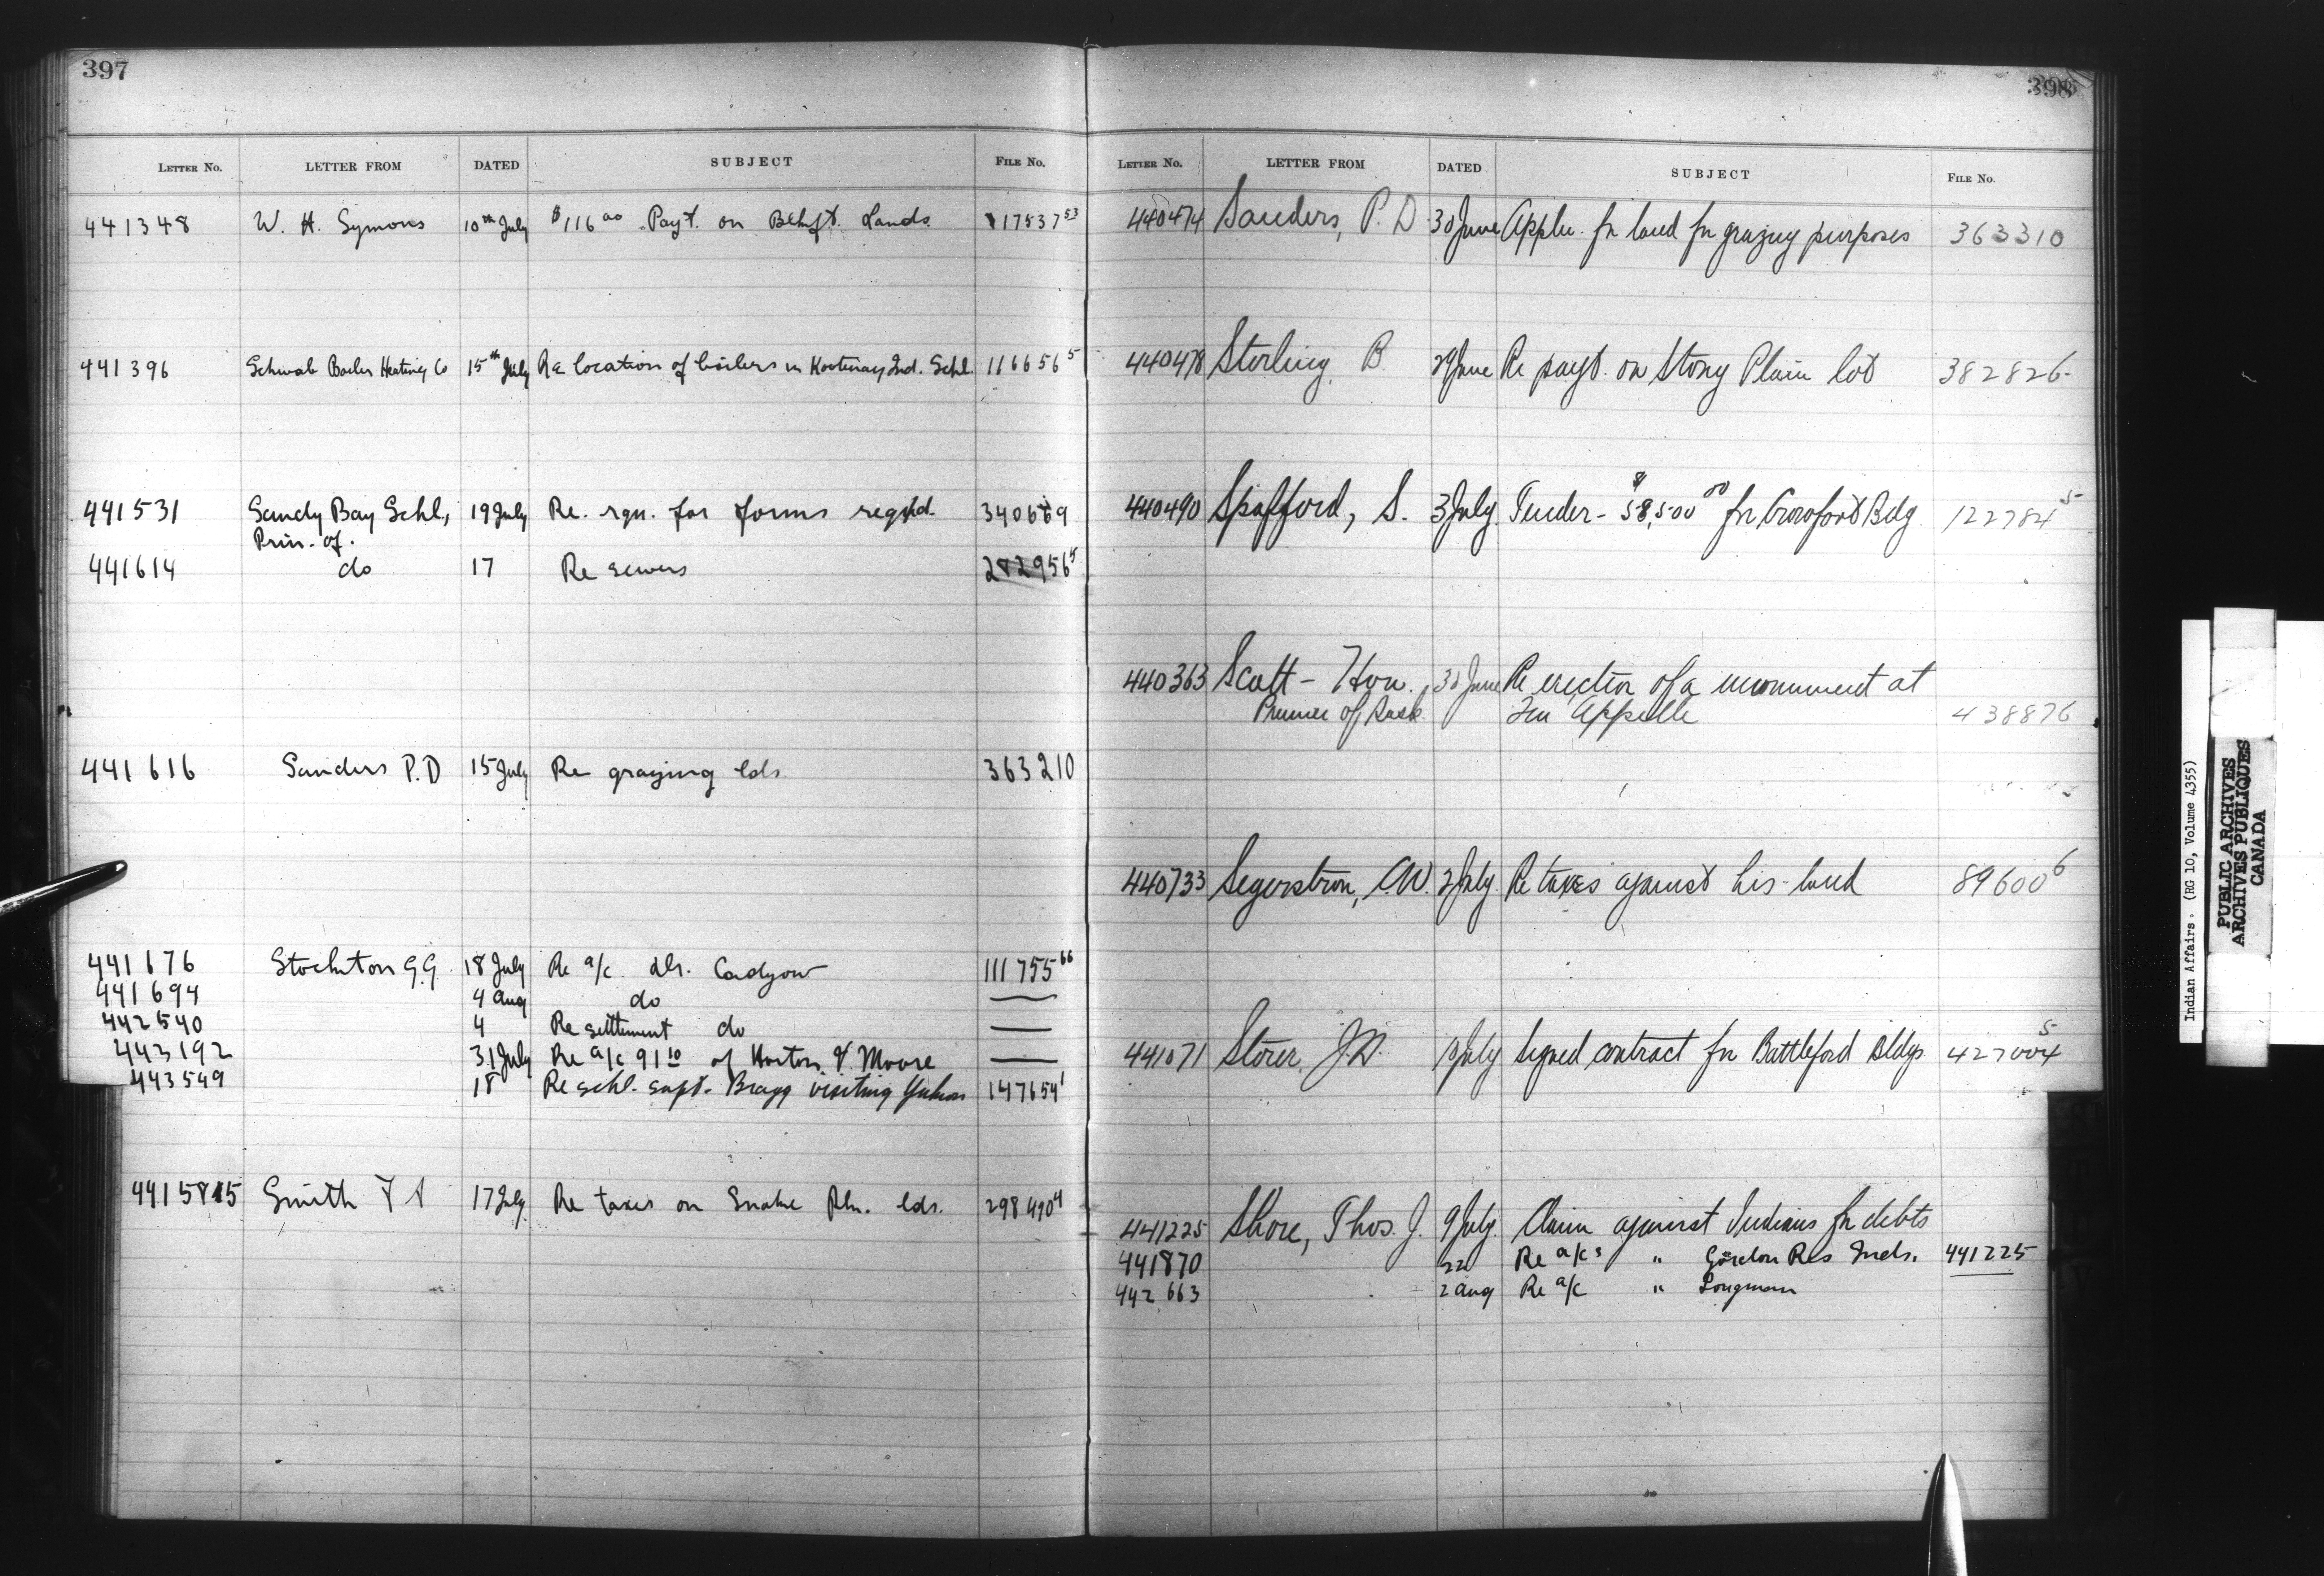 397
LETTER NO. LETTER FROM DATED SUBJECT FILE NO.
441348 W. H. Symons 10th July $116 00 Payt. on Lands 117537 53
441396 Schwab Boiler Heating Co 15th July Re location of boilers in Kootenay Ind. Schl. 116656 5
441531 Sandy Bay Schl., 19 July Re. rqn. for forms reqd. 340669
Prin. of.
441614 do 17 Re sewers 282956 5
441616 Sanders P.D 15 July Re grazing lds. 363210
441676 Stockton G.G. 18 July Re a/c Dr. Cadzow 111755 66
441694 4 Aug do —
442540 4 Re settlement do —
443192 31 July Re a/c 91 10 of Horton & Moore —
443549 18 Re schl. supt. Bragg visiting Yukon 147654 1
441585 Smith 17 July Re taxes on Snake Pln. lds. 298490 4
398
LETTER NO. LETTER FROM DATED SUBJECT FILE NO.
440474 Sanders, P. D 30 June Appln. fr land fr grazing purposes 363310
440478 Sterling B. 29 June Re payt. on Stony Plain lot 382826
440490 Spafford, S. 3 July Tender - $58,500 00 fr Crowfoot Bdg 122784 5
440363 Scott - Hon. 30 June Re erection of a monument at
Premier of Sask. Qu'Appelle 438876
440733 Segerstrom, C.W. 2 July Re taxes against his land 89600 6
441071 Storer, J.W. 10 July Signed contract fr Battleford Bldgs. 427004 5
441225 Shore, Thos. J. 9 July. Claim against Indians fr debts
441870 22 Re a/cs " Gordon Res Inds. 441225
442663 2 Aug Re a/c " Longman
Indian Affairs. (RG 10, Volume 4355)
PUBLIC ARCHIVES
ARCHIVES PUBLIQUES
CANADA